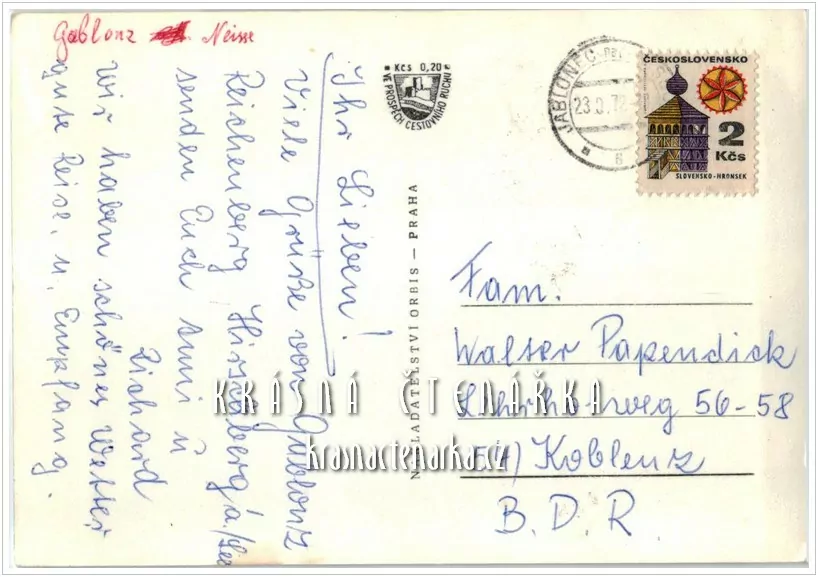 Gablonz Neisse
Ihr Lieben!
Viele Grüße von Gablonz
Reichenberg Hirschberg a./See
senden Euch Anni u
Richard
wir haben schönes Wetter
gute Reise, u. Empfang.
Kčs 0,20
VE PROSPĚCH CESTOVNÍHO RUCHU
NAKLADATELSTVÍ ORBIS — PRAHA
JABLONEC
ČESKOSLOVENSKO
2
Kčs
SLOVENSKO-HRONSEK
Fam.
Walter Papendick
56-58
54) Koblenz
B.D.R.
KRÁSNÁ ČTENÁŘKA
krasnactenarka.cz